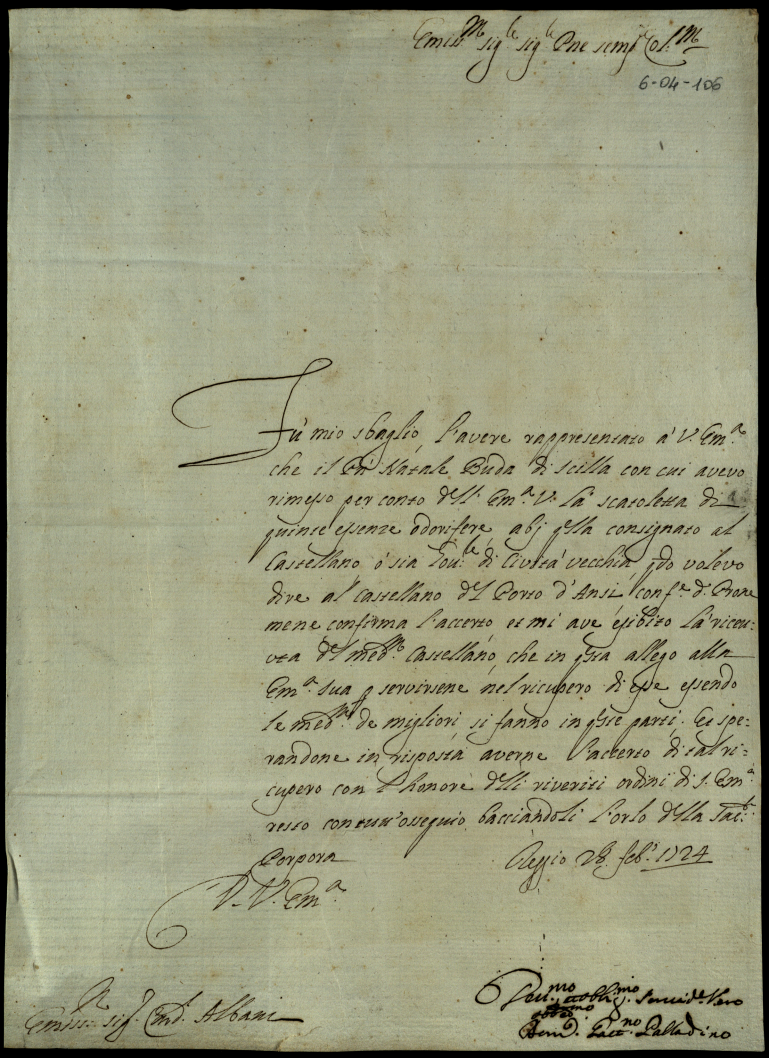 Emin.mo Sig.le Sig.le Pne semp. Col.mo
6-04-106
Fù mio sbaglio, l'avere rappresentato à V. Em.a
che il Natale Buda di Scilla con cui avevo
rimesso per conto dell'Em.a V. la scatoletta di
quinte essenze odorifere, abj qlla consignato al
Castellano, ò sia di Civita vecchia, qdo volevo
dire al Castellano del Porto d'Ansi,
mene confirma l'accerto et mi ave esibito la riceu-
uta del med.mo Castellano, che in qsta allego alla
Em.a Sua p servirsene nel ricupero di esse essendo
le med.me de migliori si fanno in qste parti. Et spe-
randone in risposta averne l'accerto di tal ri-
cupero con l'honore delli riveriti ordini di S. Em.a
resto con tutt'osseguio bacciandoli l'orlo della Sac.
Porpora Reggio 28 feb. 1724
D. V. Em.a
Emin.mo Sig.r Card. Albani
Devmo obblmo Servid.e Vero
Palladino